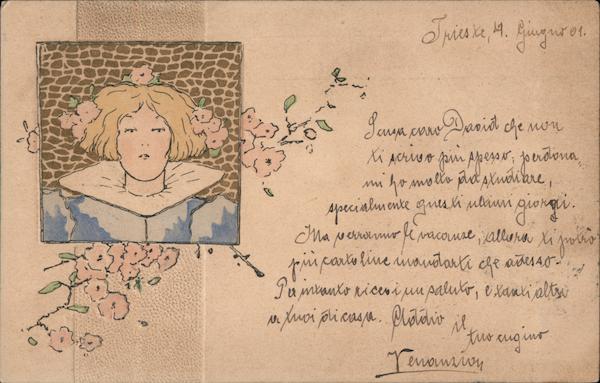 Trieste, 4. Giugno 01.
Scusa caro David che non
ti scrivo più spesso; perdona
mi ho molto da studiare,
specialmente questi ultimi giorni.
Ma verranno le vacanze, allora ti potrò
più cartoline mandarti che adesso-
Per intanto ricevi un saluto, e tanti altri
a tuoi di casa. Addio il
tuo cugino